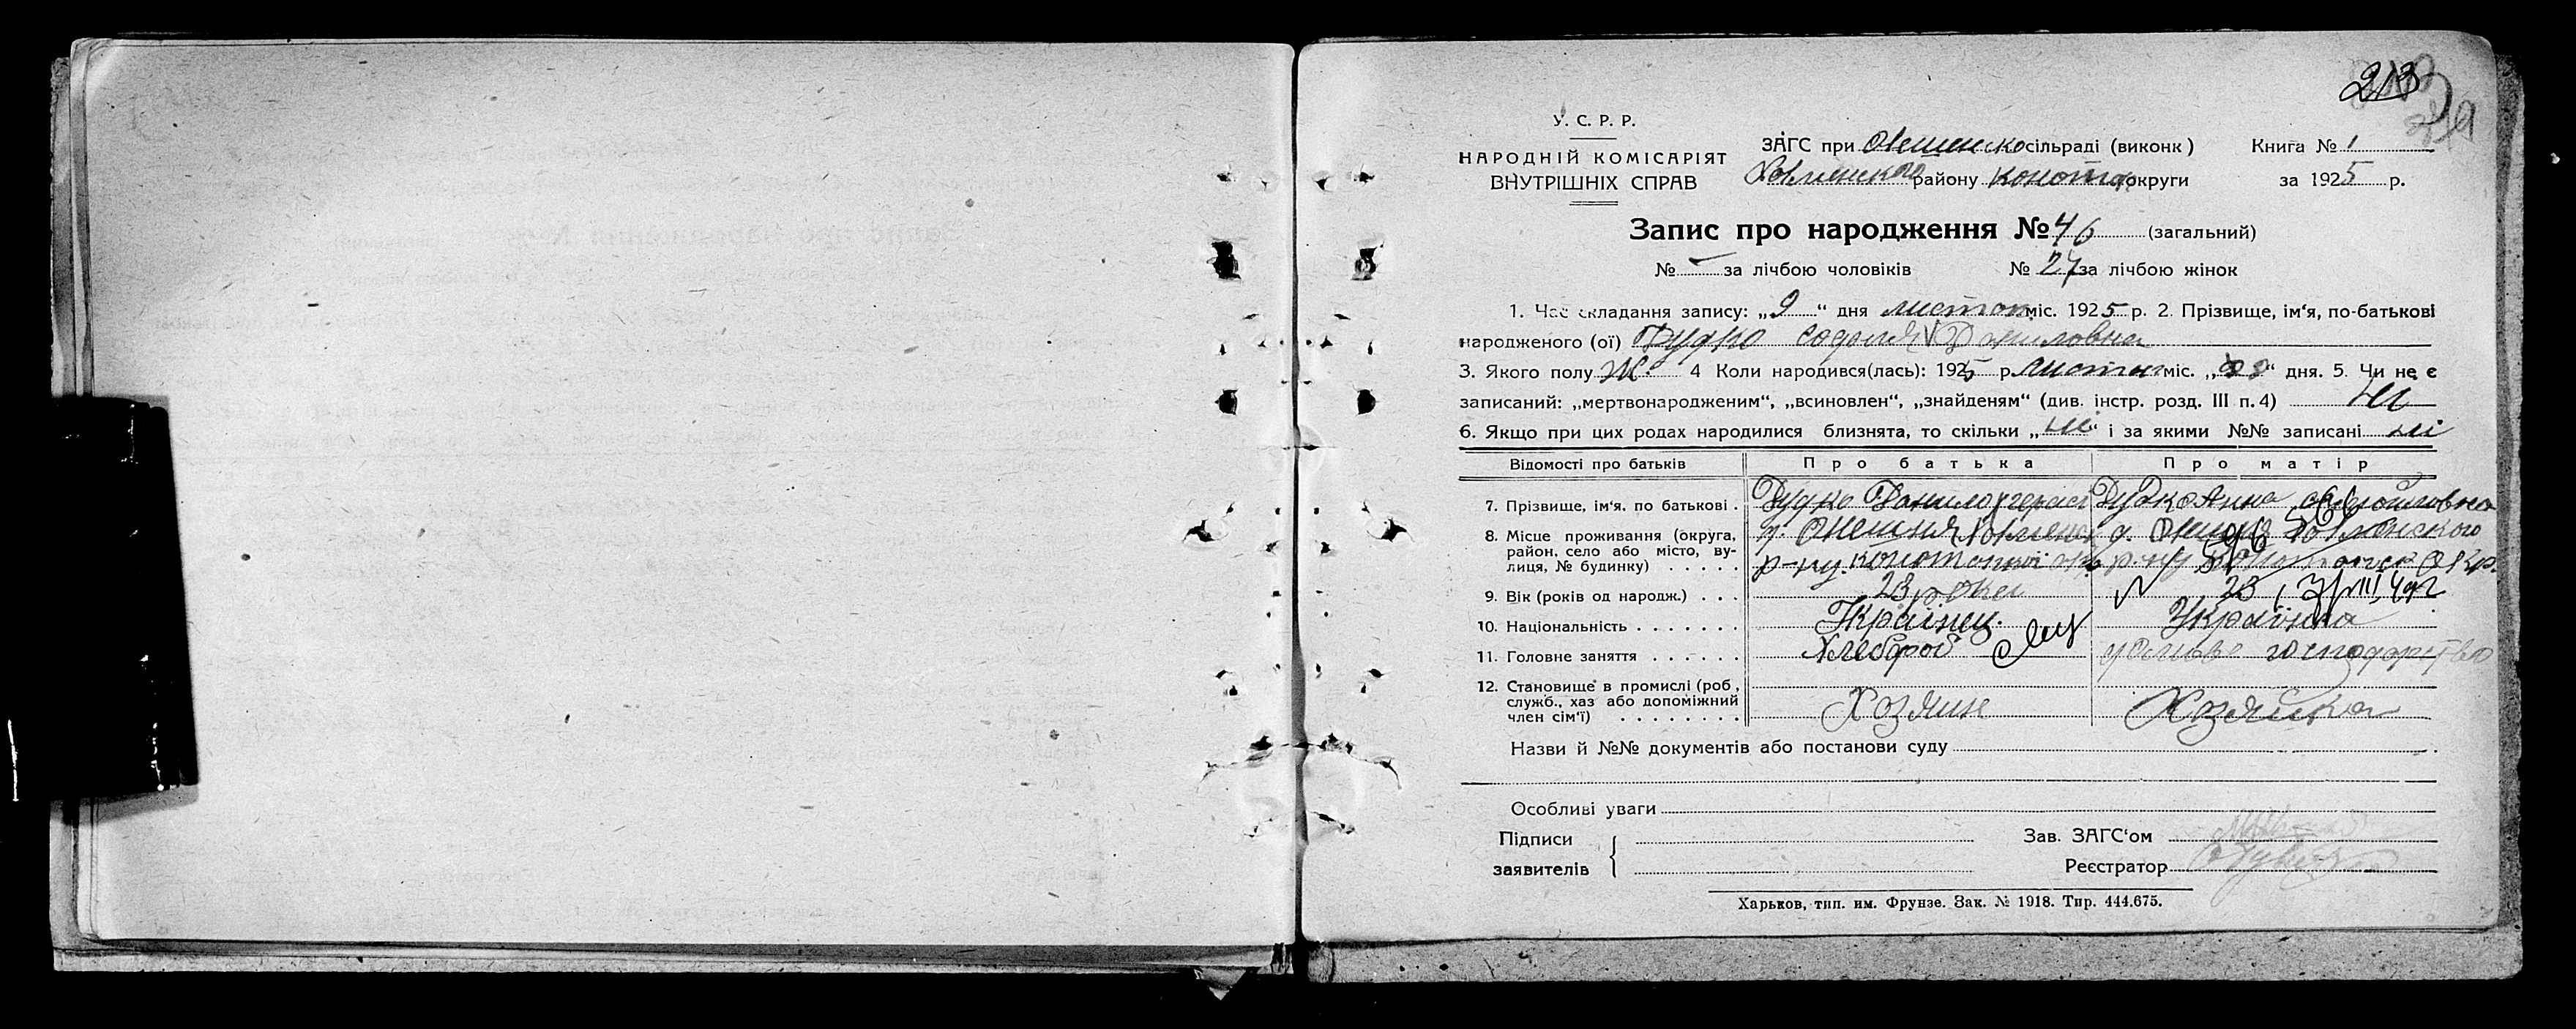 213
У. С. Р. Р.
НАРОДНІЙ КОМІСАРІЯТ
ВНУТРІШНІХ СПРАВ
ЗАГС при сільраді (виконк)
району Конотоп округи
Книга № 1
за 1925 р.
Запис про народження № 46 (загальний)
№ — за лічбою чоловіків № 27 за лічбою жінок
1. Час складання запису: „9“ дня листоп міс. 1925 р. 2. Прізвище, ім‘я, по-батькові
народженого (ої) Дудко Софія Даниловна
3. Якого полу Ж. 4 Коли народився(лась): 1925 р листоп міс. „ “ дня. 5. Чи не є
записаний: „мертвонародженим“, „всиновлен“, „знайденям“ (див. інстр. розд. III п. 4) Ні
6. Якщо при цих родах народилися близнята, то скільки „ні“ і за якими №№ записані ні
Відомості про батьків Про батька Про матір
7. Прізвище, ім‘я, по батькові . Дудко Данило Герас Дудко Анна
8. Місце проживання (округа, район, село або місто, вулиця, № будинку) . . . . .
р-ну Конотопкої р-ну
9. Вік (років од народж.) . . . 23 роки 23
10. Національність . . . . . . . Українец. Українка
11. Головне заняття . . . . . . Хлебороб господарство
12. Становище в промислі (роб, служб., хаз або допоміжний член сім‘ї) . . . . . . . . Хозяин Хозяйка
Назви й №№ документів або постанови суду
Особливі уваги
Підписи
заявителів
Зав. ЗАГС‘ом
Реєстратор
Харьков, тип. им. Фрунзе. Зак. № 1918. Тир. 444.675.